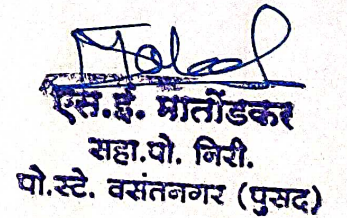 एस.ई. मातोंडकर
सहा.पो. निरी.
पो.स्टे. वसंतनगर (पुसद)